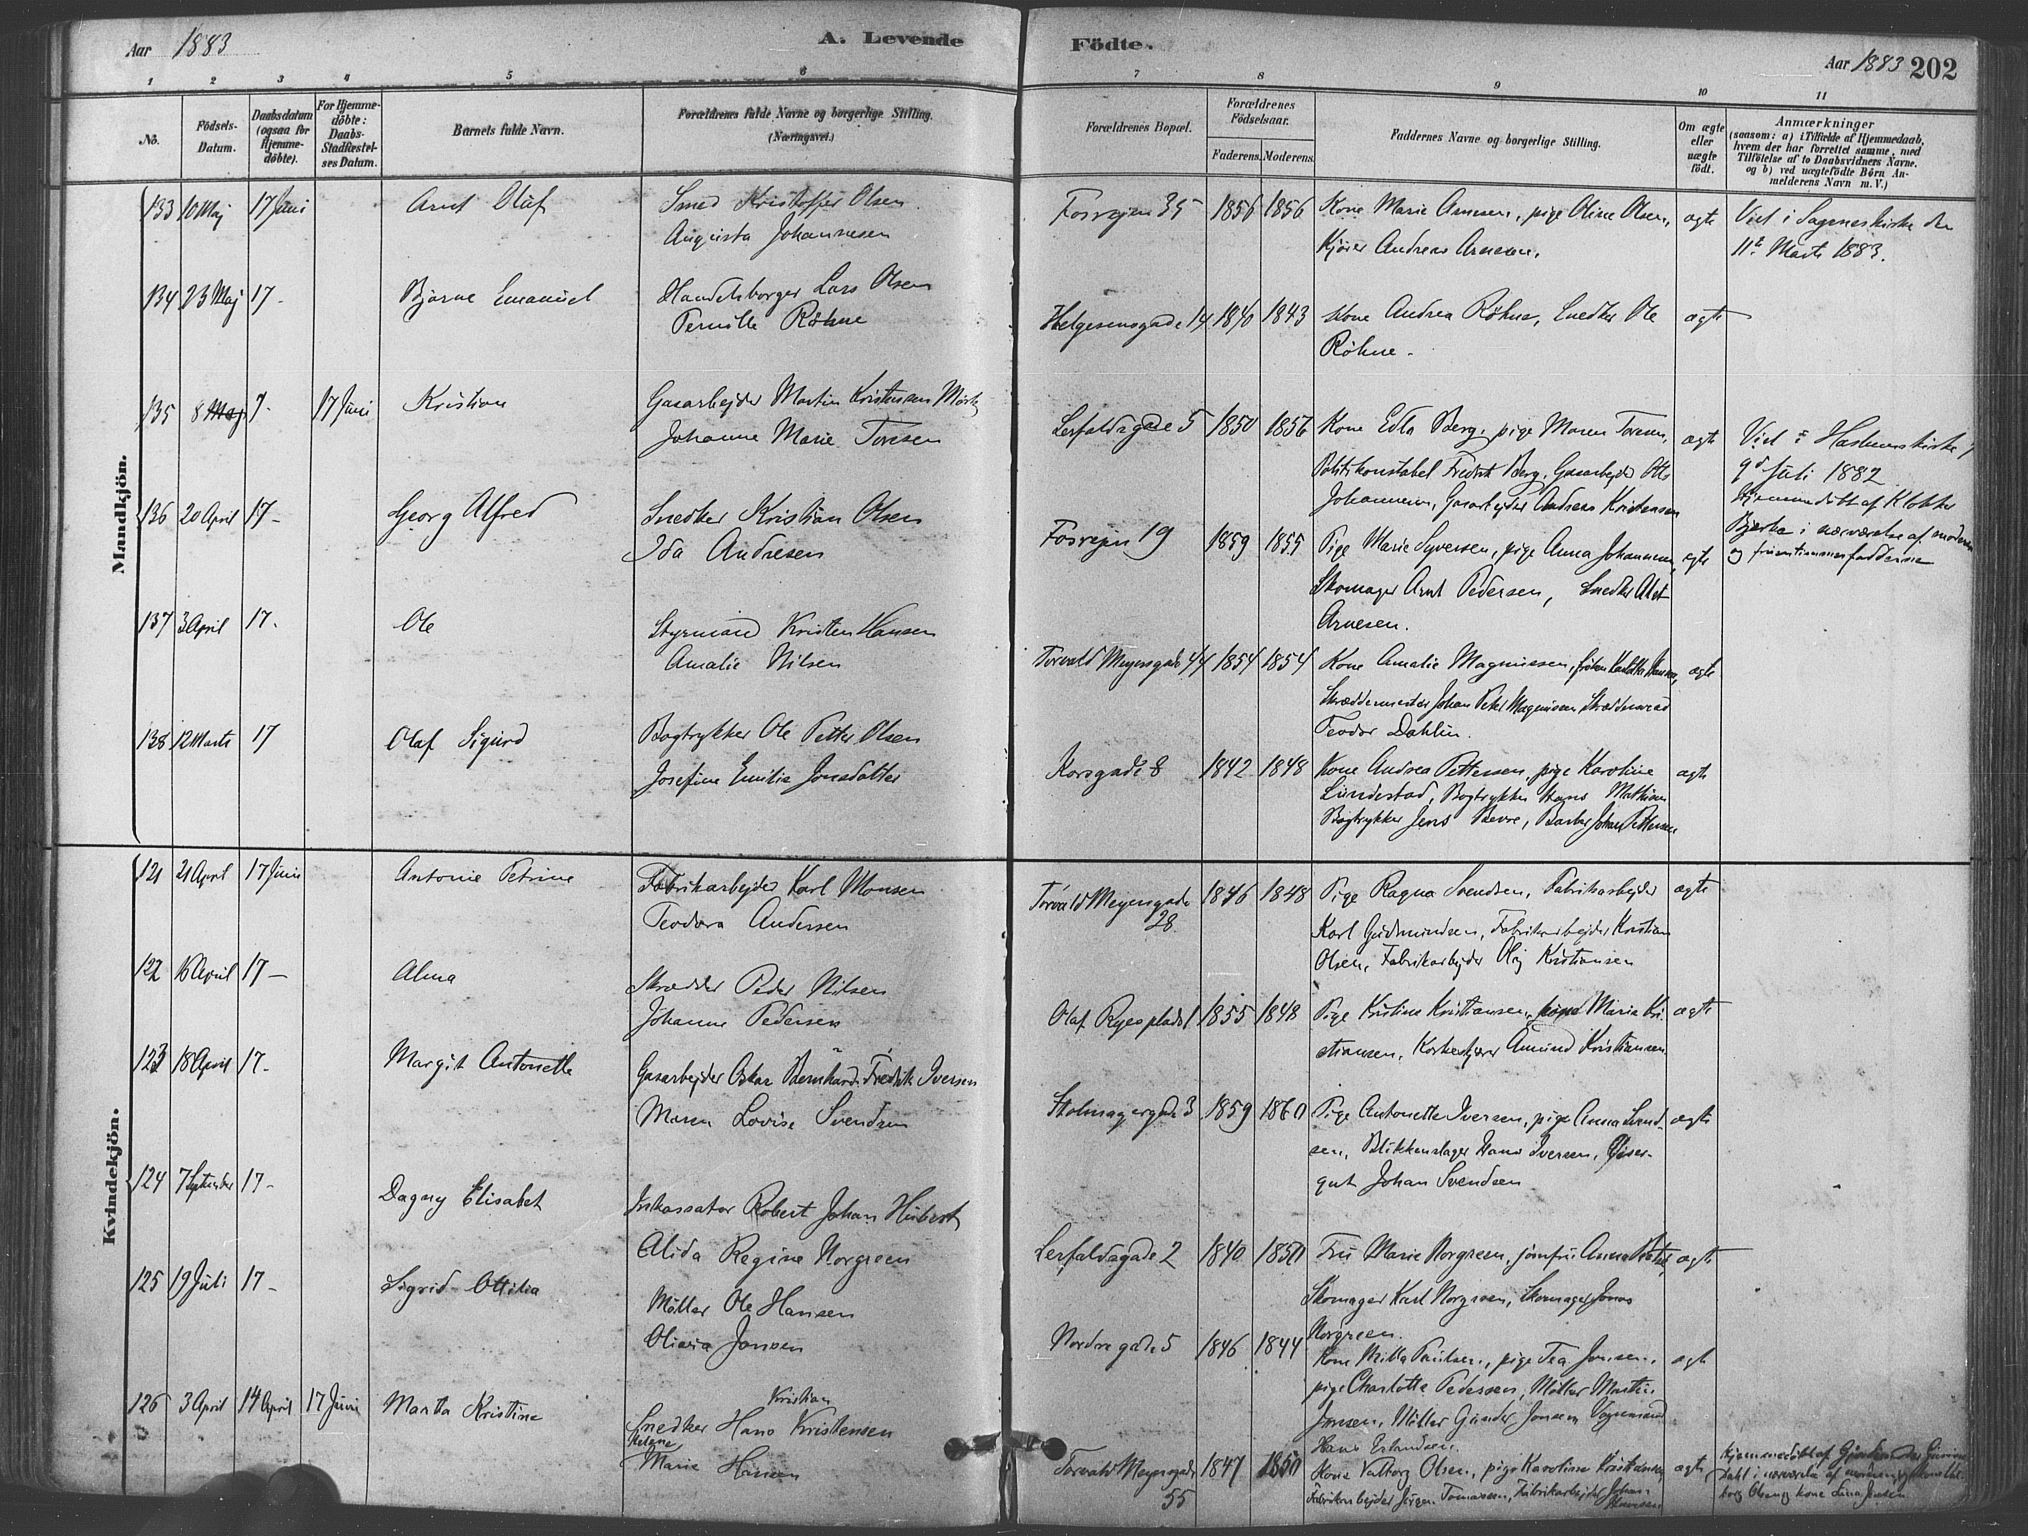 Aar 1883
A. Levende
Födte.
Aar 1883 202
1 2 3 4 5 6 7 8 9 10 11
No.
Födsels-
Datum.
Daabsdatum
(ogsaa for
Hjemme-
döbte).
For Hjemme-
döbte:
Daabs-
Stadfæstel-
ses Datum.
Barnets fulde Navn.
Forældrenes fulde Navne og borgerlige Stilling.
(Næringsvei.)
Forældrenes Bopæl.
Forældrenes
Födselsaar.
Faderens. Moderens.
Faddernes Navne og borgerlige Stilling.
Om ægte
eller
uægte
födt.
Anmærkninger
(saasom: a) i Tilfælde af Hjemmedaab,
hvem der har forrettet samme, med
Tilföielse af to Daabsvidners Navne.
og b) ved uægtefödte Börn An-
melderens Navn m. V.)
Mandkjön.
133 10 Maj 17 Juni Arnt Oluf Smed Kristoffer Olsen
Augusta Johannesen
Fosvejen 35 1856 1856 Kone Marie Arnesen, pige Oline Olsen, ægte
Kjører Andreas Arnesen.
Viet i Sagenes kirke den
11te Marts 1883.
134 23 Maj 17- Bjarne Emanuel Handelsborger Lars Olsen
Pernille Röhne
Helgesensgade 14 1840 1843 Kone Andrea Röhne, Snedker Ole ægte
Röhne.
135 8 Maj 17 Juni Kristian Gasarbejder Martin Kristensen
Johanne Marie Toresen
Lerfaldsgade 5 1850 1856 Kone Edla Berg, pige Maren Toresen, ægte
Politikonstabel Fredrik Berg, Gasarbejder Otto
Johannesen, Gasarbejder Andreas Kristensen
Juli 1882
Hjemmedöbt af Klokker
Bjerke i nærværelse af moderen
og
136 20 April 17- Georg Alfred Snedker Kristian Olsen
Ida Andresen
Fosvejen 19 1859 1855 Pige Marie Syversen, pige Anna Johannesen, ægte
Skomager Arnt Pedersen, Snedker
Arnesen.
137 3 April 17. Ole Styrmand Kristen Hansen
Amalie Nilsen
Torvald Meyersgade 44 1854 1854 Kone Amalie Magnussen, ægte
Skræddermester Johan Peter Magnussen, Skræddersvend
Teodor Dahlin.
138 12 Marts 17 Olaf Sigurd Bogtrykker Ole Petter Olsen
Josefine Emilie Jonsdatter
Korsgade 8 1842 1848 Kone Andrea Pettersen, pige Karoline ægte
Lundestad, Bogtrykker Hans Mathisen
Bogtrykker Jens Bevre, Barber Johan Pettersen
Kvindekjön.
121 21 April 17 Juni Antonie Petrine Fabrikarbejder Karl Monsen
Teodora Andersen
Torvald Meyersgade 28 1846 1848 Pige Ragna Svendsen, Fabrikarbejder ægte
Karl Gudmundsen, Fabrikarbejder Kristian
Olsen, Fabrikarbejder Kristiansen
122 16 April 17- Alma Skrædder Peder Nilsen
Johanne Pedersen
Olaf Ryesplads 1 1855 1848 Pige Kristine Kristiansen, pige Maria Kri- ægte
stiansen, Amund Kristiansen
123 18 April 17- Margit Antonette Gasarbejder Oskar Bernhard Fredrik Iversen
Maren Lovise Svendsen
Stolmagergade 3 1859 1860 Pige Antonette Iversen, pige Anna Svend- ægte
sen, Blikkenslager Hans Iversen, Viser-
gut Johan Svendsen
124 7 September 17- Dagny Elisabet Inkassator Robert Johan Hubert
Alida Regine Norgreen
Lerfaldsgade 2 1840 1850 Fru Marie Norgreen, jomfru Anna ægte
Skomager Karl Norgreen, Skomager Jonas
Norgreen.
125 19 Juli 17- Sigrid Ottilia Möller Ole Hansen
Olivia Jonsen
Nordregade 5 1846 1844 Kone Milla Paulsen, pige Tea Jonsen, ægte
pige Charlotte Pedersen, Möller Martin
Jonsen, Möller Gunder Jonsen, Vognmand
Hans Erlandsen.
126 3 April 14 April 17 Juni Marta Kristine Kristian
Snedker Hans Kristensen
Helene
Marie Hansen
Torvald Meyersgade 55 1847 1850 Kone Valborg Olsen, pige Karoline Kristiansen, ægte
Fabrikarbejder Jörgen Tomasen, Fabrikarbejder Johan
Hjemmedöbt af
Dahl i nærværelse af
borg Olsen og kone Lina Jensen